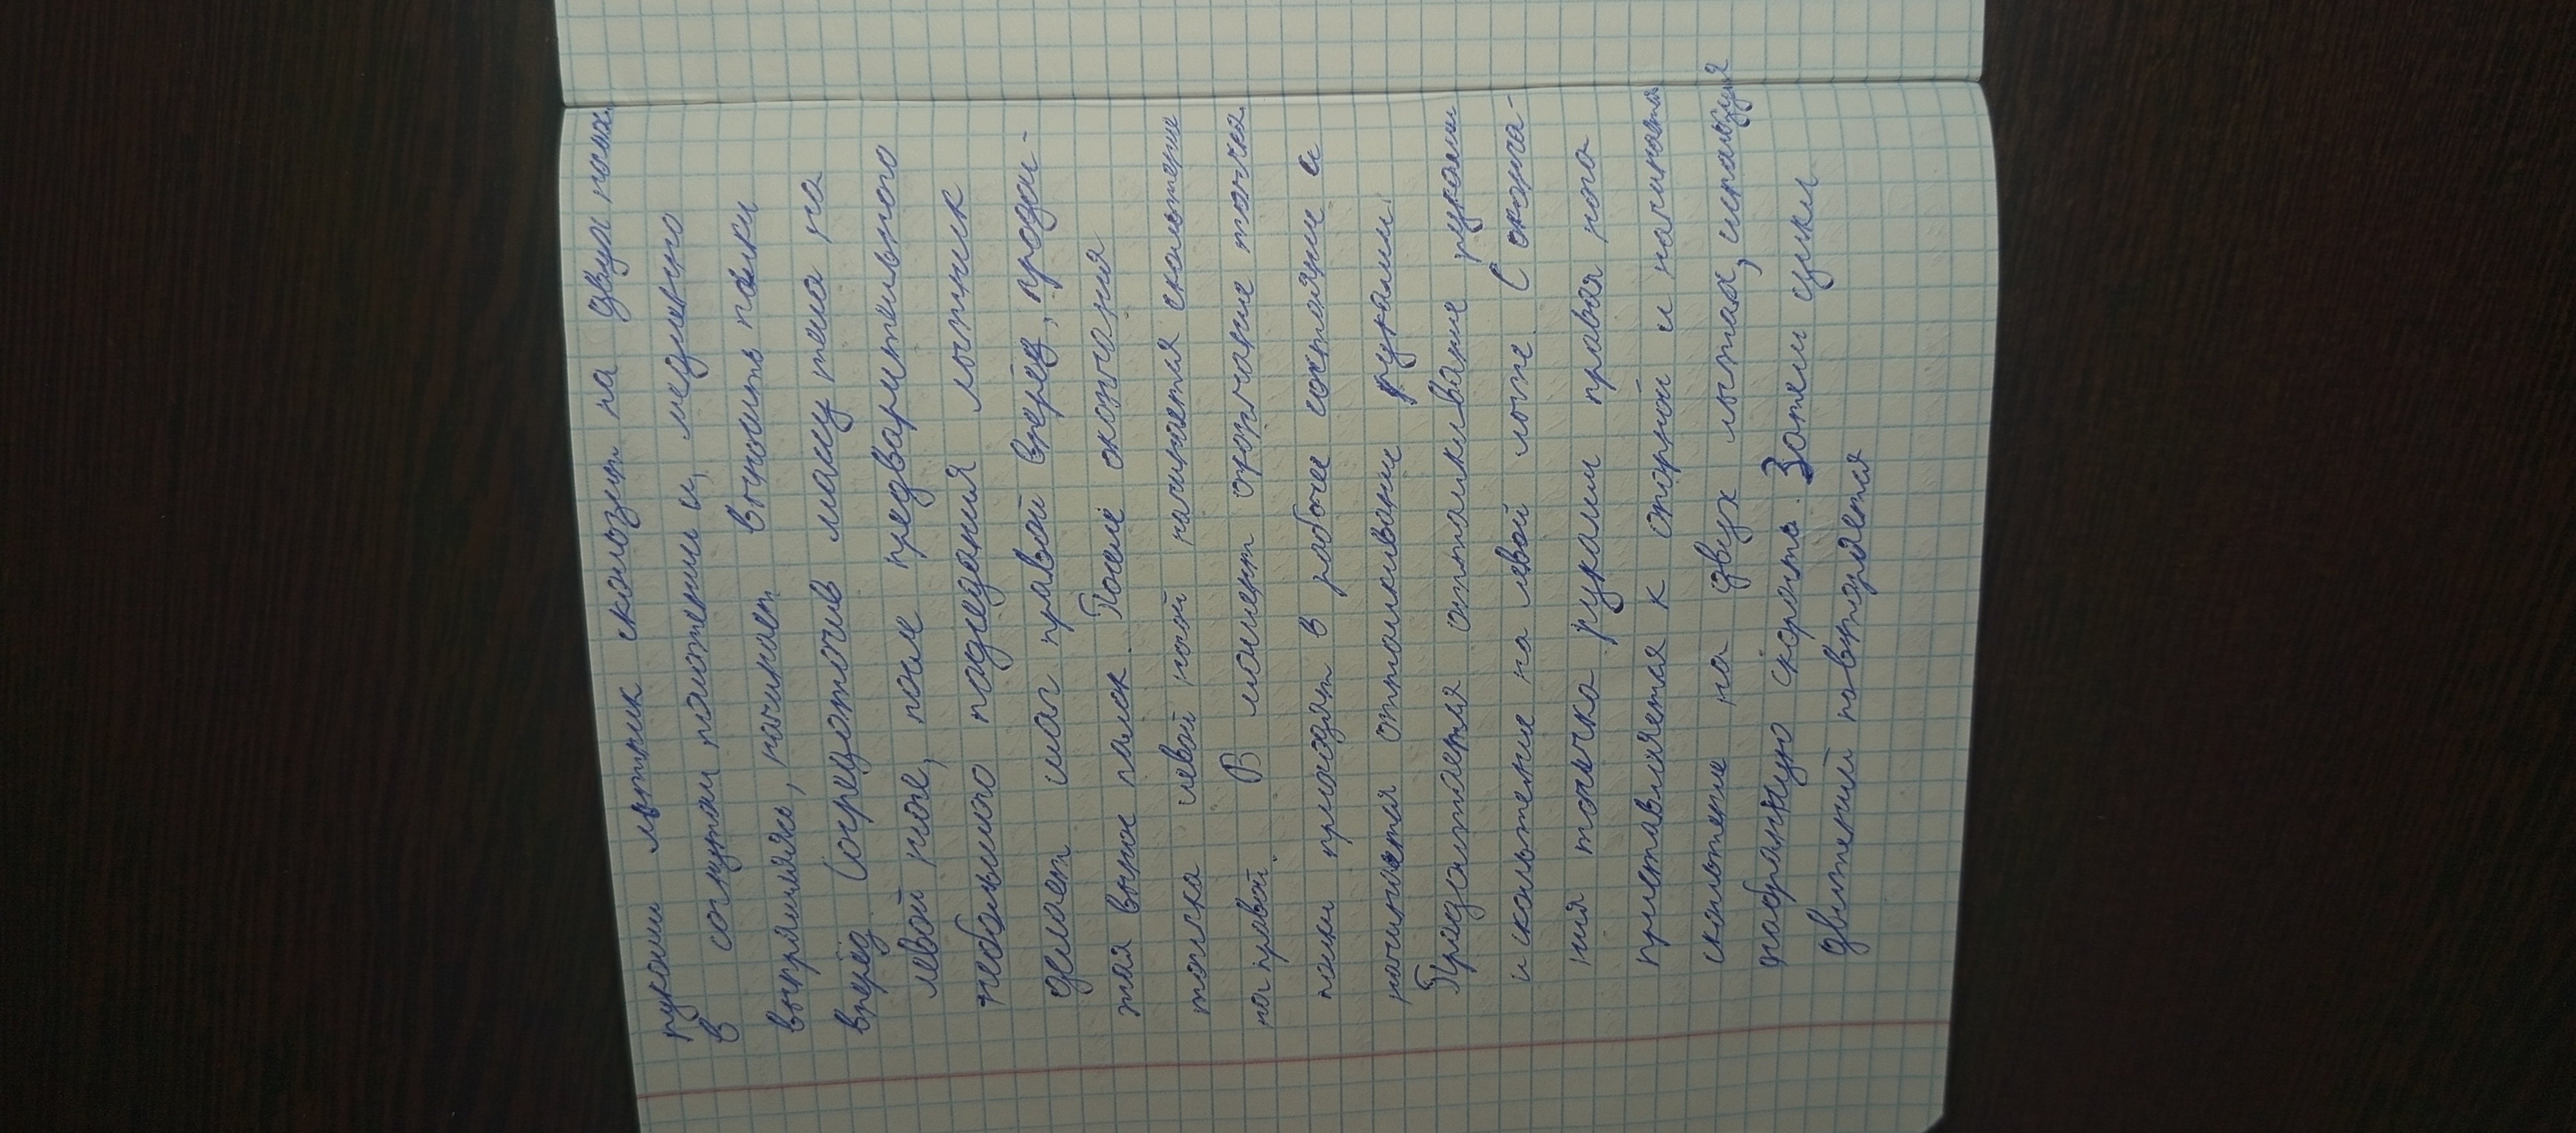 руками лыжник скользит на двух ногах
в согнутом положении и, медленно
выпрямляясь, начинает выносить палки
вперёд. Сосредоточив массу тела на
левой ноге, после предварительного
небольшого подседания лыжник
делает шаг правой вперёд, продол-
жая вынос палок. После окончания
толчка левой ногой начинается скольжение
на правой. В момент окончание толчка
палки приходят в рабочее состояние и
начинается отталкивание руками.
Продолжается отталкивание руками
и скольжение на левой лыже. С оконча-
ния толчка руками правая нога
приставляется к опорной и начинается
скольжение на двух лыжах, используя
набранную скорость. Затем цикл
движений повторяется